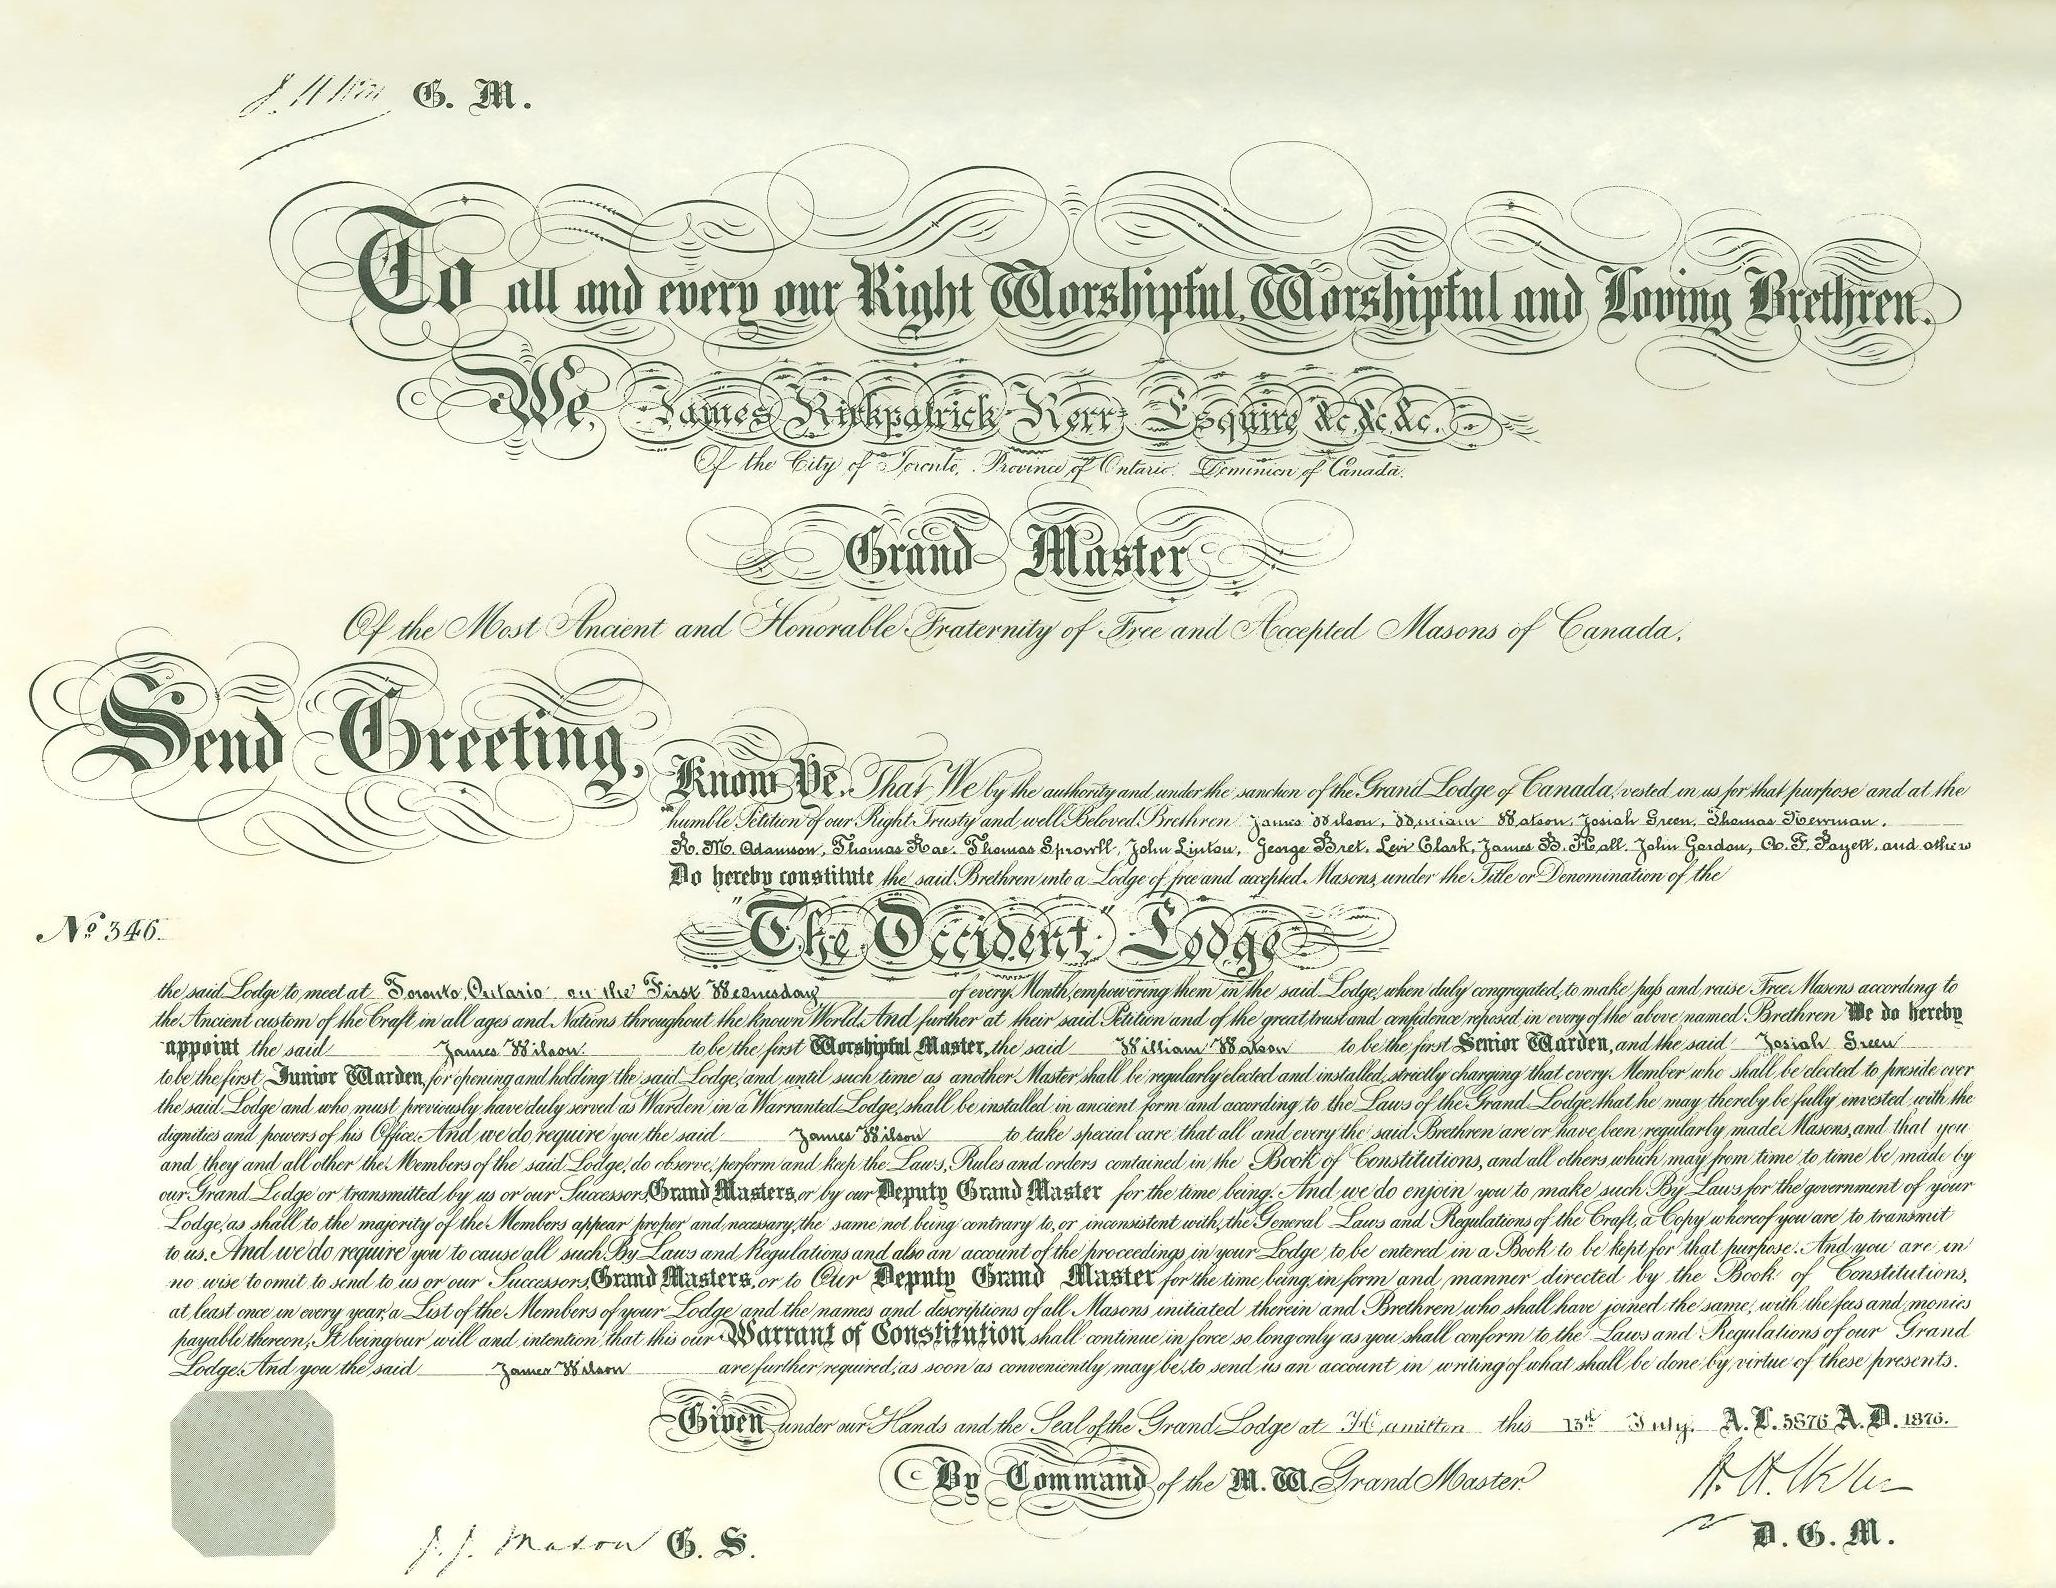 G. M.
To all and every our Right Worshipful, Worshipful and Loving Brethren.
We, James Kirkpatrick Kerr Esquire &c. &c. &c.
Of the City of Toronto, Province of Ontario. Dominion of Canada.
Grand Master
Of the Most Ancient and Honorable Fraternity of Free and Accepted Masons of Canada.
Send Greeting,
Know Ye, That We by the authority and under the sanction of the Grand Lodge of Canada, vested in us for that purpose and at the
humble Petition of our Right Trusty and well Beloved Brethren James Wilson, William Watson, Josiah Green, Thomas Newman,
R. M. Adamson, Thomas Rae, Thomas Sprowll, John Linton, George Bret, Levi Clark, James B. Hall, John Gordon, Payett, and others
Do hereby constitute the said Brethren into a Lodge of free and accepted Masons, under the Title or Denomination of the
No 346.
"The Occident," Lodge
the said Lodge to meet at Toronto, Ontario on the First Wednesday of every Month, empowering them in the said Lodge, when duly congregated, to make pass and raise Free Masons according to
the Ancient custom of the Craft in all ages and Nations throughout the known World. And further at their said Petition and of the great trust and confidence reposed in every of the above named Brethren We do hereby
appoint the said James Wilson. to be the first Worshipful Master, the said William Watson to be the first Senior Warden, and the said Josiah Green
to be the first Junior Warden, for opening and holding the said Lodge, and until such time as another Master shall be regularly elected and installed, strictly charging that every Member who shall be elected to preside over
the said Lodge and who must previously have duly served as Warden in a Warranted Lodge, shall be installed in ancient form and according to the Laws of the Grand Lodge, that he may thereby be fully invested with the
dignities and powers of his Office. And we do require you the said James Wilson to take special care that all and every the said Brethren are or have been regularly made Masons, and that you
and they and all other the Members of the said Lodge, do observe, perform and keep the Laws, Rules and orders contained in the Book of Constitutions, and all others which may from time to time be made by
our Grand Lodge or transmitted by us or our Successors, Grand Masters, or by our Deputy Grand Master for the time being. And we do enjoin you to make such By Laws for the government of your
Lodge, as shall to the majority of the Members appear proper and necessary, the same not being contrary to, or inconsistent with, the General Laws and Regulations of the Craft, a Copy whereof you are to transmit
to us. And we do require you to cause all such By Laws and Regulations and also an account of the proceedings in your Lodge to be entered in a Book to be kept for that purpose. And you are in
no wise to omit to send to us or our Successors, Grand Masters, or to Our Deputy Grand Master for the time being, in form and manner directed by the Book of Constitutions,
at least once in every year, a List of the Members of your Lodge and the names and descriptions of all Masons initiated therein and Brethren who shall have joined the same, with the fees and monies
payable thereon, It being our will and intention that this our Warrant of Constitution shall continue in force so long only as you shall conform to the Laws and Regulations of our Grand
Lodge. And you the said James Wilson are further required, as soon as conveniently may be, to send us an account in writing of what shall be done by virtue of these presents.
Given under our Hands and the Seal of the Grand Lodge at Hamilton this 13th July. A. L. 5876 A. D. 1876.
By Command of the M. W. Grand Master.
D. G. M.
J. J. Mason G. S.